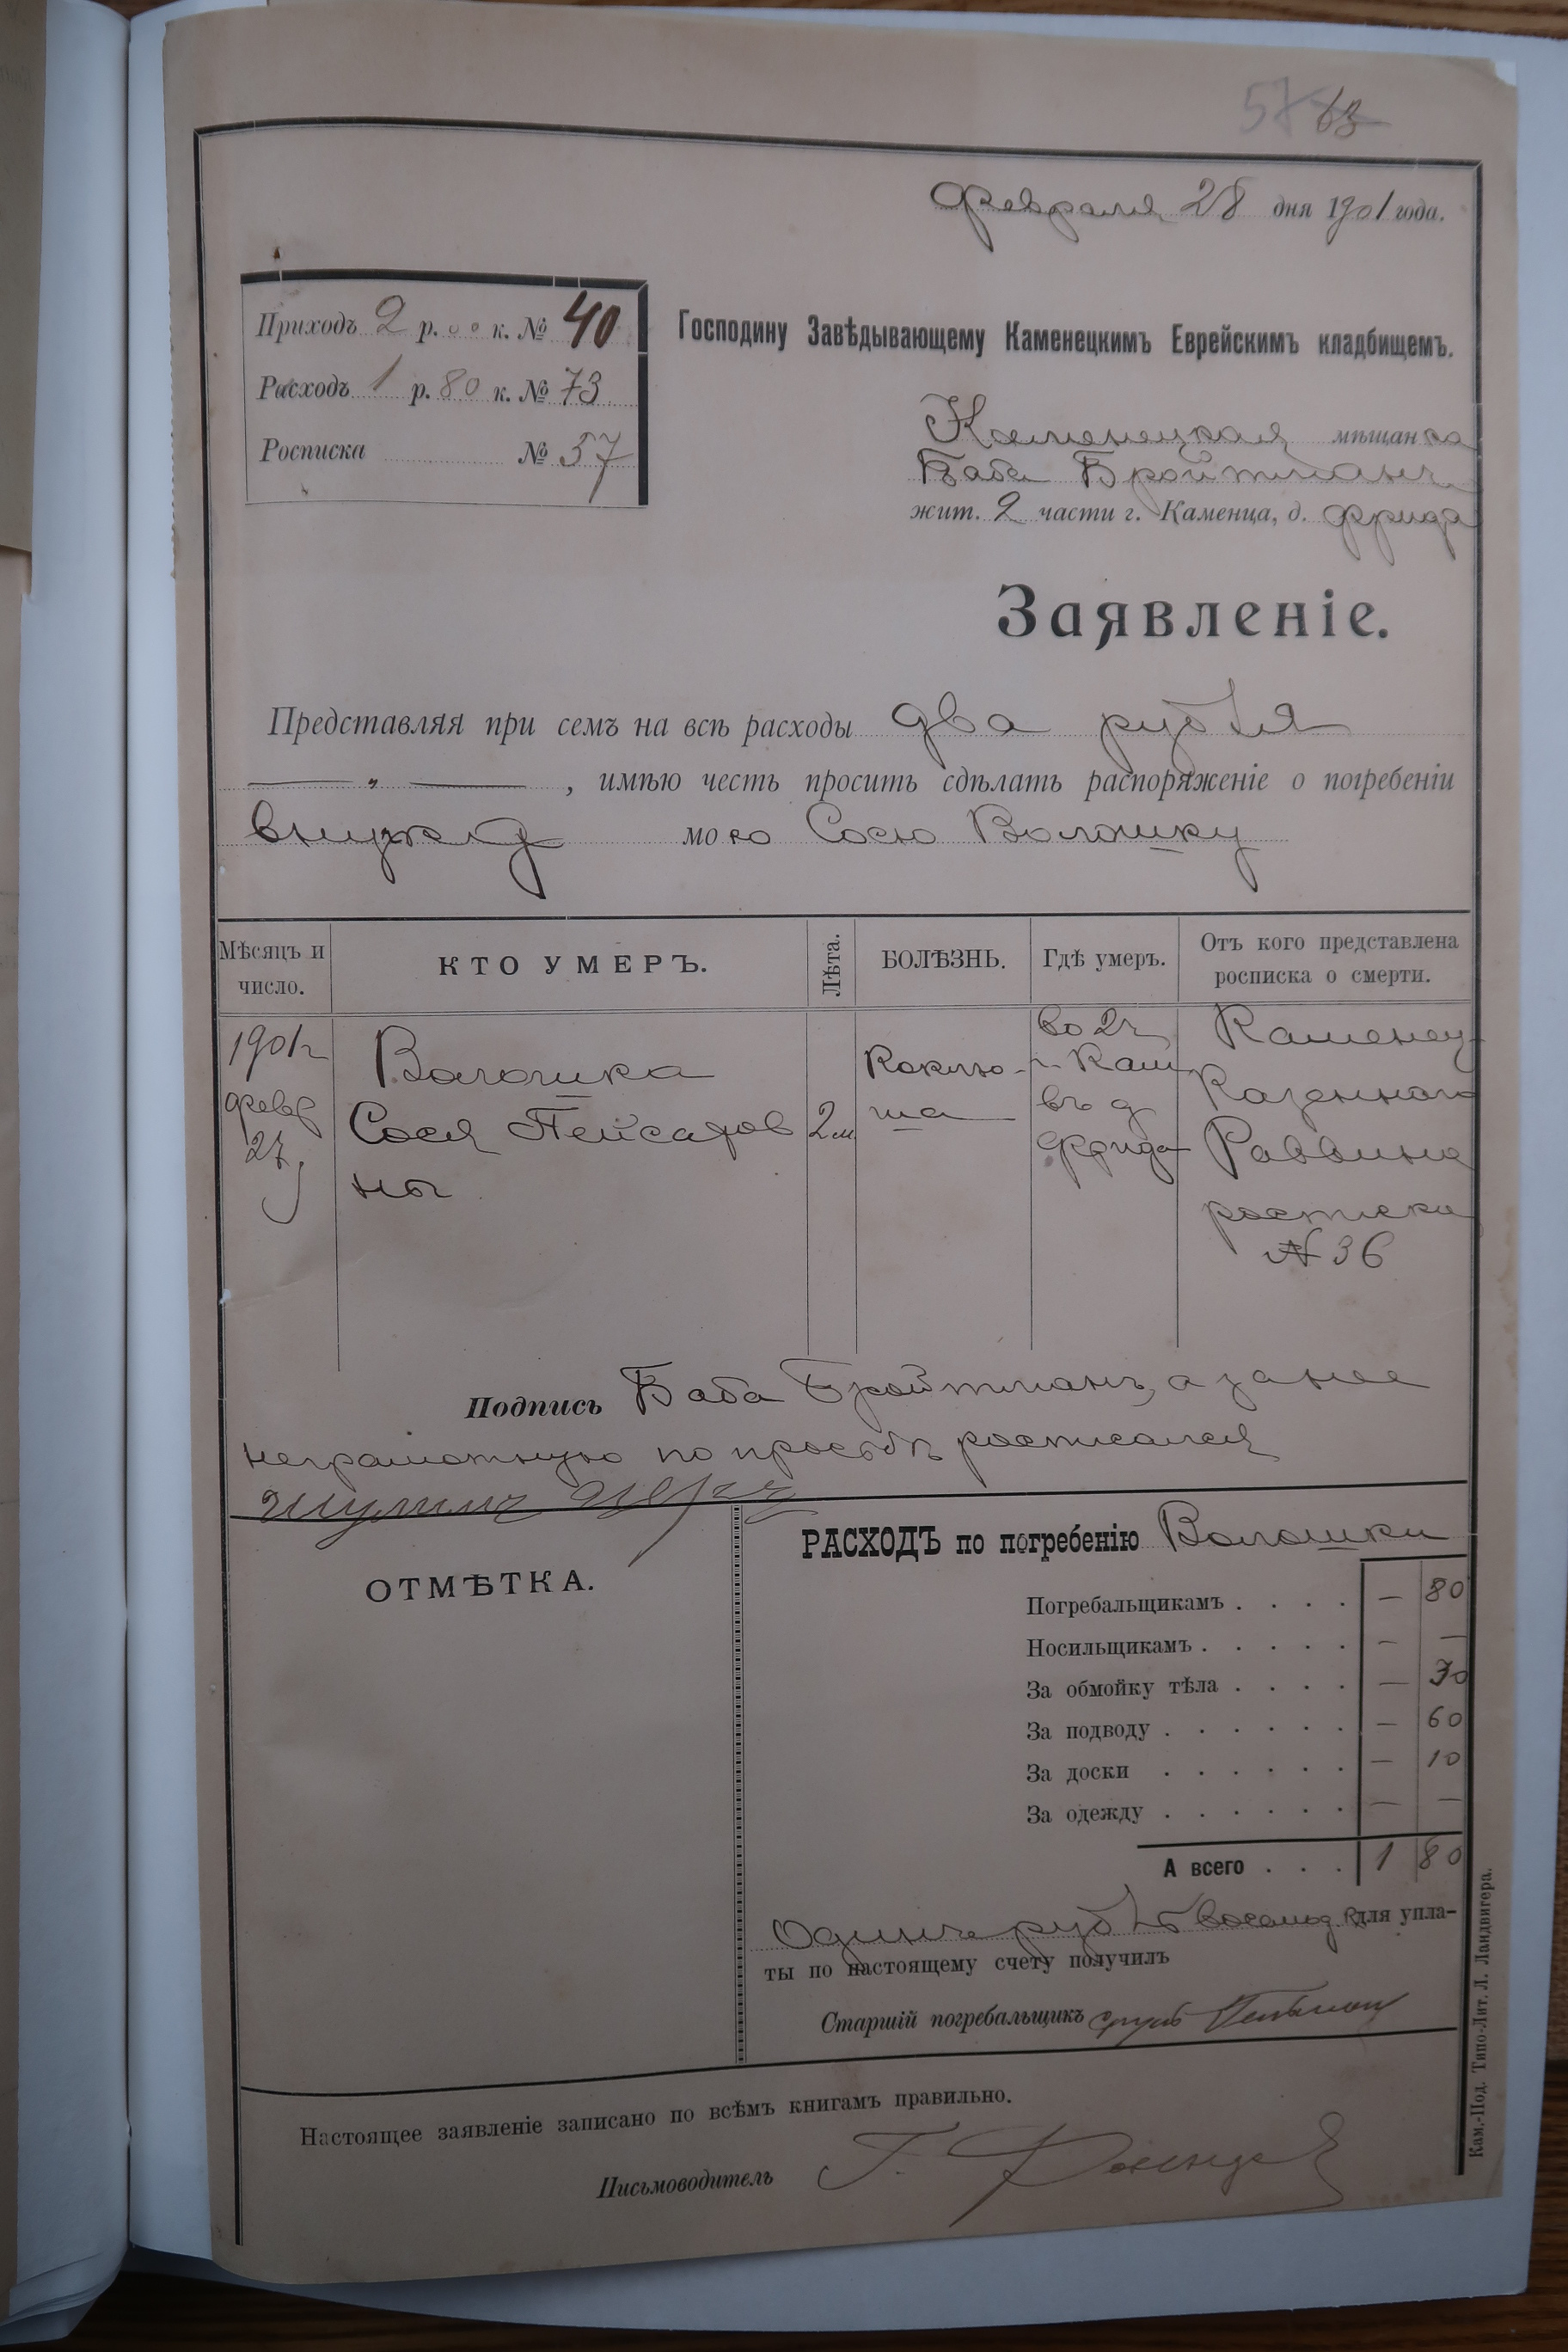 57 63
Февраля 28 дня 1901 года.
Приходъ 2 р. 00 к. № 40
Расходъ 1 р. 80 к. № 73
Росписка № 57
Господину Завѣдывающему Каменецкимъ Еврейскимъ кладбищемъ.
Каменецкая мѣщанка
Баба Бройтманъ
жит. 2 части г. Каменца, д. Фрида
Заявленіе.
Представляя при семъ на всѣ расходы два рубля
— „ — , имѣю честь просить сдѣлать распоряженіе о погребеніи
внучку мою Сосю Волошку
Мѣсяцъ и число.
КТО УМЕРЪ.
Лѣта.
БОЛѢЗНЬ.
Гдѣ умеръ.
Отъ кого представлена
росписка о смерти.
1901 г
февр
27
Волошка
Сося Пейсахов
ны
2 м
Коклю-
ша
во 2 ч
г. Кам
въ д
Фрида
Каменец
Казеннаго
Раввина
росписка
№ 36
Подпись Баба Бройтманъ, а за нее
неграмотную по просьбѣ росписался
Шулимъ
ОТМѢТКА.
РАСХОДЪ по погребенію Волошки
Погребальщикамъ . . . . — 80
Носильщикамъ . . . . . — —
За обмойку тѣла . . . . — 30
За подводу . . . . . . — 60
За доски . . . . . . — 10
За одежду . . . . . . — —
А всего . . . 1 80
Одинъ рубль восемьд к для упла-
ты по настоящему счету получилъ
Старшій погребальщикъ
Настоящее заявленіе записано по всѣмъ книгамъ правильно.
Письмоводитель
Кам.-Под. Типо-Лит. Л. Ландвигера.